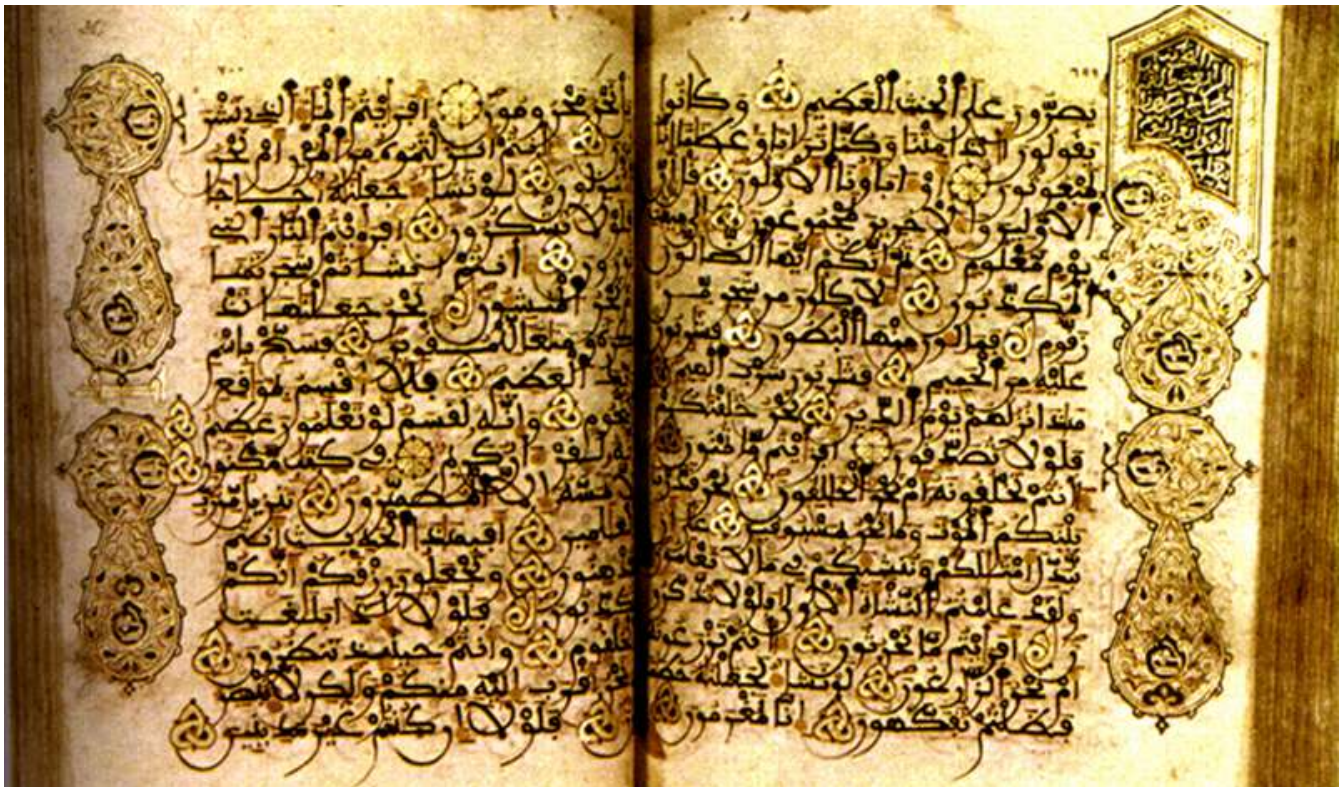 يصرون على الحنث العظيم وكانوا
يقولون ائذا متنا وكنا ترابا وعظاما انا
لمبعوثون او اباونا الاولون قل ان
الاولين والاخرين لمجموعون الى ميقت
يوم معلوم ثم انكم ايها الضالون
المكذبون لاكلون من شجر من
زقوم فمالون منها البطون فشربون
عليه من الحميم فشربون شرب الهيم
هذا نزلهم يوم الدين نحن خلقنكم
فلولا تصدقون افرايتم ما تمنون
انتم تخلقونه ام نحن الخلقون نحن قدرنا
بينكم الموت وما نحن بمسبوقين على ان
نبدل امثلكم وننشيكم في ما لا تعلمون
ولقد علمتم النشاة الاولى فلولا تذكرو
ن افرايتم ما تحرثون انتم تزرعونه
ام نحن الزرعون لو نشا لجعلنه حطما
فظلتم تفكهون انا لمغرمون
بل نحن محرومون افرايتم الما الذي تشر
بون انتم انزلتموه من المزن ام نحن
المنزلون لو نشا جعلنه اجاجا
فلولا تشكرون افرايتم النار التي
تورون انتم انشاتم شجرتها
ام نحن المنشون نحن جعلنها تذ
كرة ومتعا للمقوين فسبح باسم
ربك العظيم فلا اقسم بموقع
النجوم وانه لقسم لو تعلمون عظيم
انه لقران كريم في كتب مكنون
لا يمسه الا المطهرون تنزيل من رب
العلمين افبهذا الحديث انتم
مدهنون وتجعلون رزقكم انكم
تكذبون فلولا اذا بلغت
الحلقوم وانتم حينئذ تنظرون
ونحن اقرب اليه منكم ولكن لا تبصر
ون فلولا ان كنتم غير مدينين